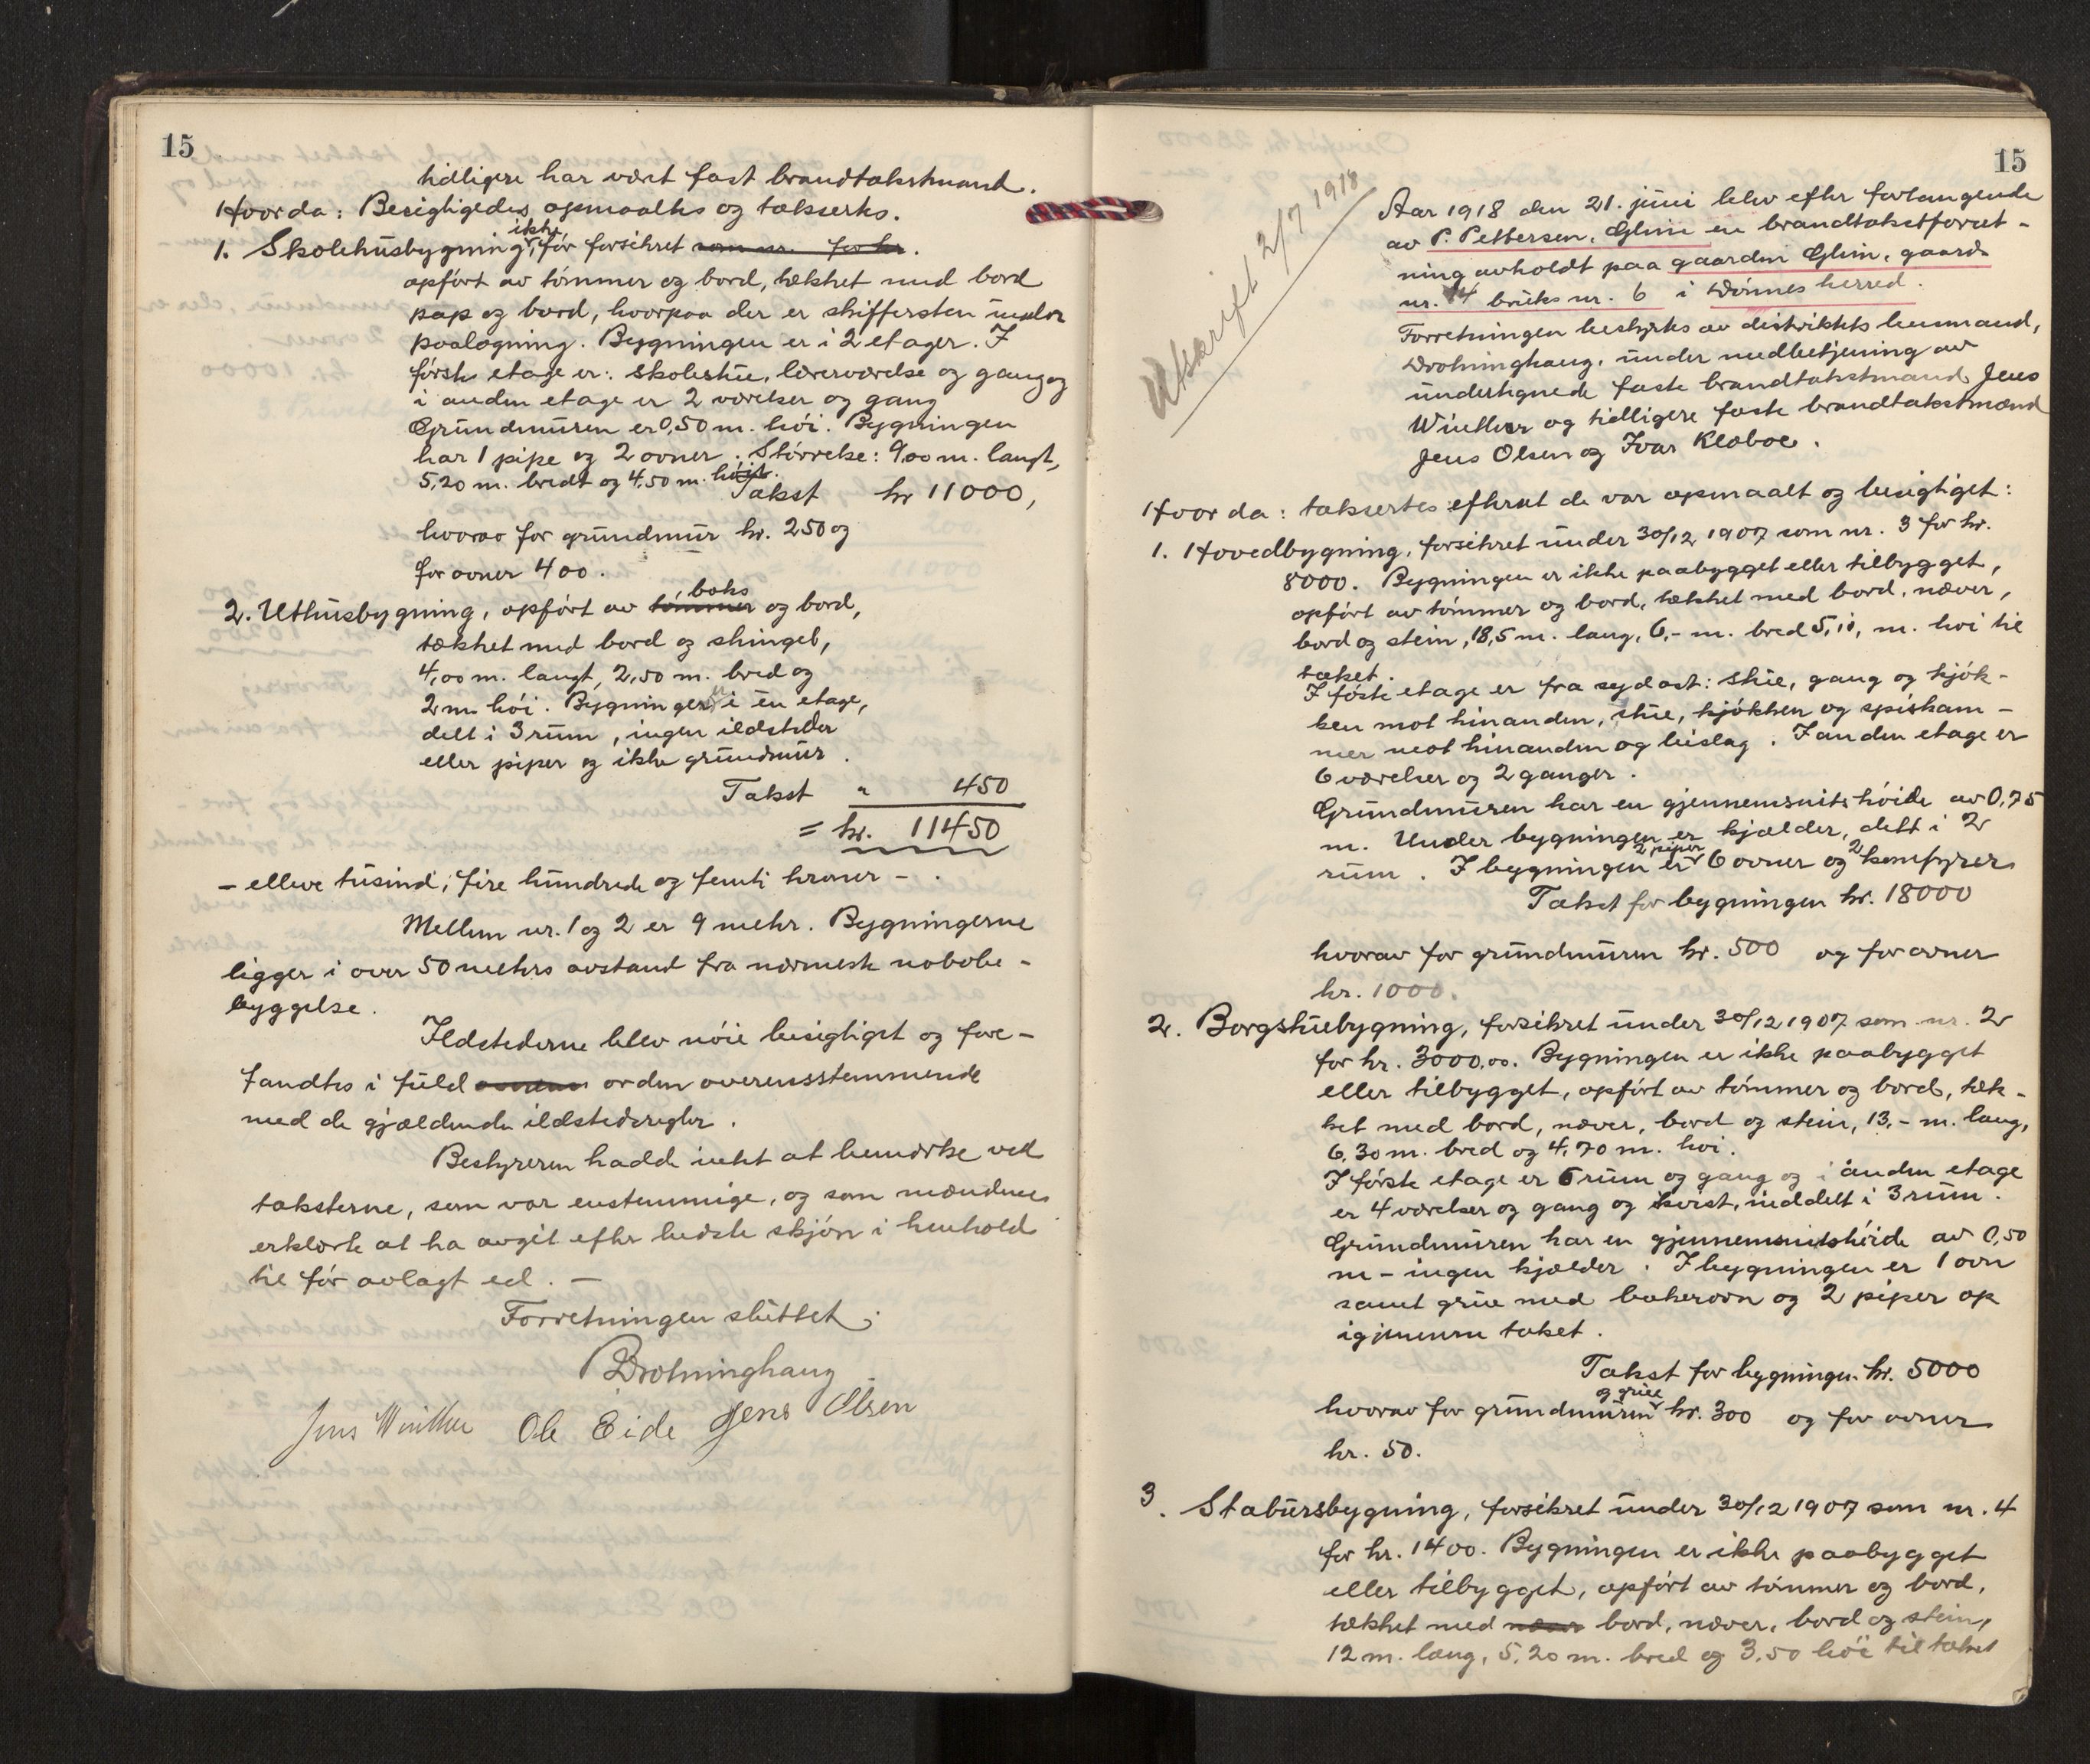 15
tidligere har været fast brandtakstmand.
Hvorda: Besigtigedes, opmaaltes og taksertes.
1. Skolehusbygning, ikke før forsikret som nr. for kr.
opført av tømmer og bord, tækket med bord
pap og bord, hvorpaa der er skiffersten under
paalægning. Bygningen er i 2 etager. I
første etage er: skolestue, lærerværelse og gang og
i anden etage er 2 værelser og gang
Grundmuren er 0,50 m. høi. Bygningen
har 1 pipe og 2 ovner. Størrelse: 9,00 m. langt,
5,20 m. bredt og 4,50 m. høit.
Takst kr 11000,
hvorav for grundmur kr. 250 og
for ovner 400.
2. Uthusbygning, opført av tømmer boks og bord,
tækket med bord og shingel,
4,00 m. langt, 2,50 m. bred og
2 m. høi. Bygningen i en etage,
delt i 3 rum, ingen ildsteder
eller piper og ikke grundmur.
Takst " 450
= kr. 11450
– elleve tusind, fire hundrede og femti kroner – .
Mellem nr. 1 og 2 er 9 meter. Bygningerne
ligger i over 50 meters avstand fra nærmeste nabobe-
byggelse.
Ildstederne blev nøie besigtiget og fore-
fandtes i fuld orden overensstemmende
med de gjældende ildstedsregler.
Bestyreren hadde intet at bemerke ved
taksterne, som var enstemmige, og som mændene
erklærte at ha avgit efter bedste skjøn i henhold
til før avlagt ed. –
Forretningen sluttet;
Drotninghaug
Jens Winther Ole Eide Jens Olsen
15
Utskrift 2/7 1918
Aar 1918 den 21. juni blev efter forlangende
av P. Pettersen, Glein en brandtakstforret-
ning avholdt paa gaarden Glein, gaards
nr. 14 bruks nr. 6 i Dønnes herred.
Forretningen bestyrtes av distriktets lensmand,
Drotninghaug, under medbetjening av
undertegnede faste brandtakstmand Jens
Winther og tidligere faste brandtakstmænd
Jens Olsen og Ivar Klæboe.
Hvorda: taksertes efterat de var opmaalt og besigtiget:
1. Hovedbygning, forsikret under 30/12 1907 som nr. 3 for kr.
8000. Bygningen er ikke paabygget eller tilbygget,
opført av tømmer og bord, tækket med bord, næver,
bord og stein, 18,5 m. lang, 6,- m. bred 5,10, m. høi til
taket.
I føste etage er fra sydost: stue, gang og kjøk-
ken mot hinanden, stue, kjøkken og spiskam-
mer mot hinanden og bislag. I anden etage er
6 værelser og 2 ganger.
Grundmuren har en gjennemsnitshøide av 0,75
m. Under bygningen er kjælder, delt i 2
rum. I bygningen er 2 piper 6 ovner og 2 komfyrer
Takst for bygningen kr. 18000
hvorav for grundmuren kr. 500 og for ovner
kr. 1000.
2. Borgstuebygning, forsikret under 30/12 1907 som nr. 2
for kr. 3000,00. Bygningen er ikke paabygget
eller tilbygget, opført av tømmer og bord, tæk-
ket med bord, næver, bord og stein, 13,- m. lang,
6,30 m. bred og 4,70 m. høi.
I første etage er 5 rum og gang og i anden etage
er 4 værelser og gang og kvist, inddelt i 3 rum.
Grundmuren har en gjennemsnitshøide av 0,50
m – ingen kjælder. I bygningen er 1 ovn
samt grue med bakerovn og 2 piper op
igjennem taket.
Takst for bygningen kr. 5000
hvorav for grundmuren og grue kr. 300 og for ovner
kr. 50.
3. Stabursbygning, forsikret under 30/12 1907 som nr. 4
for kr. 1400. Bygningen er ikke paabygget
eller tilbygget, opført av tømmer og bord,
tækket med næver bord, næver, bord og stein,
12 m. lang, 5,20 m. bred og 3,50 høi til taket